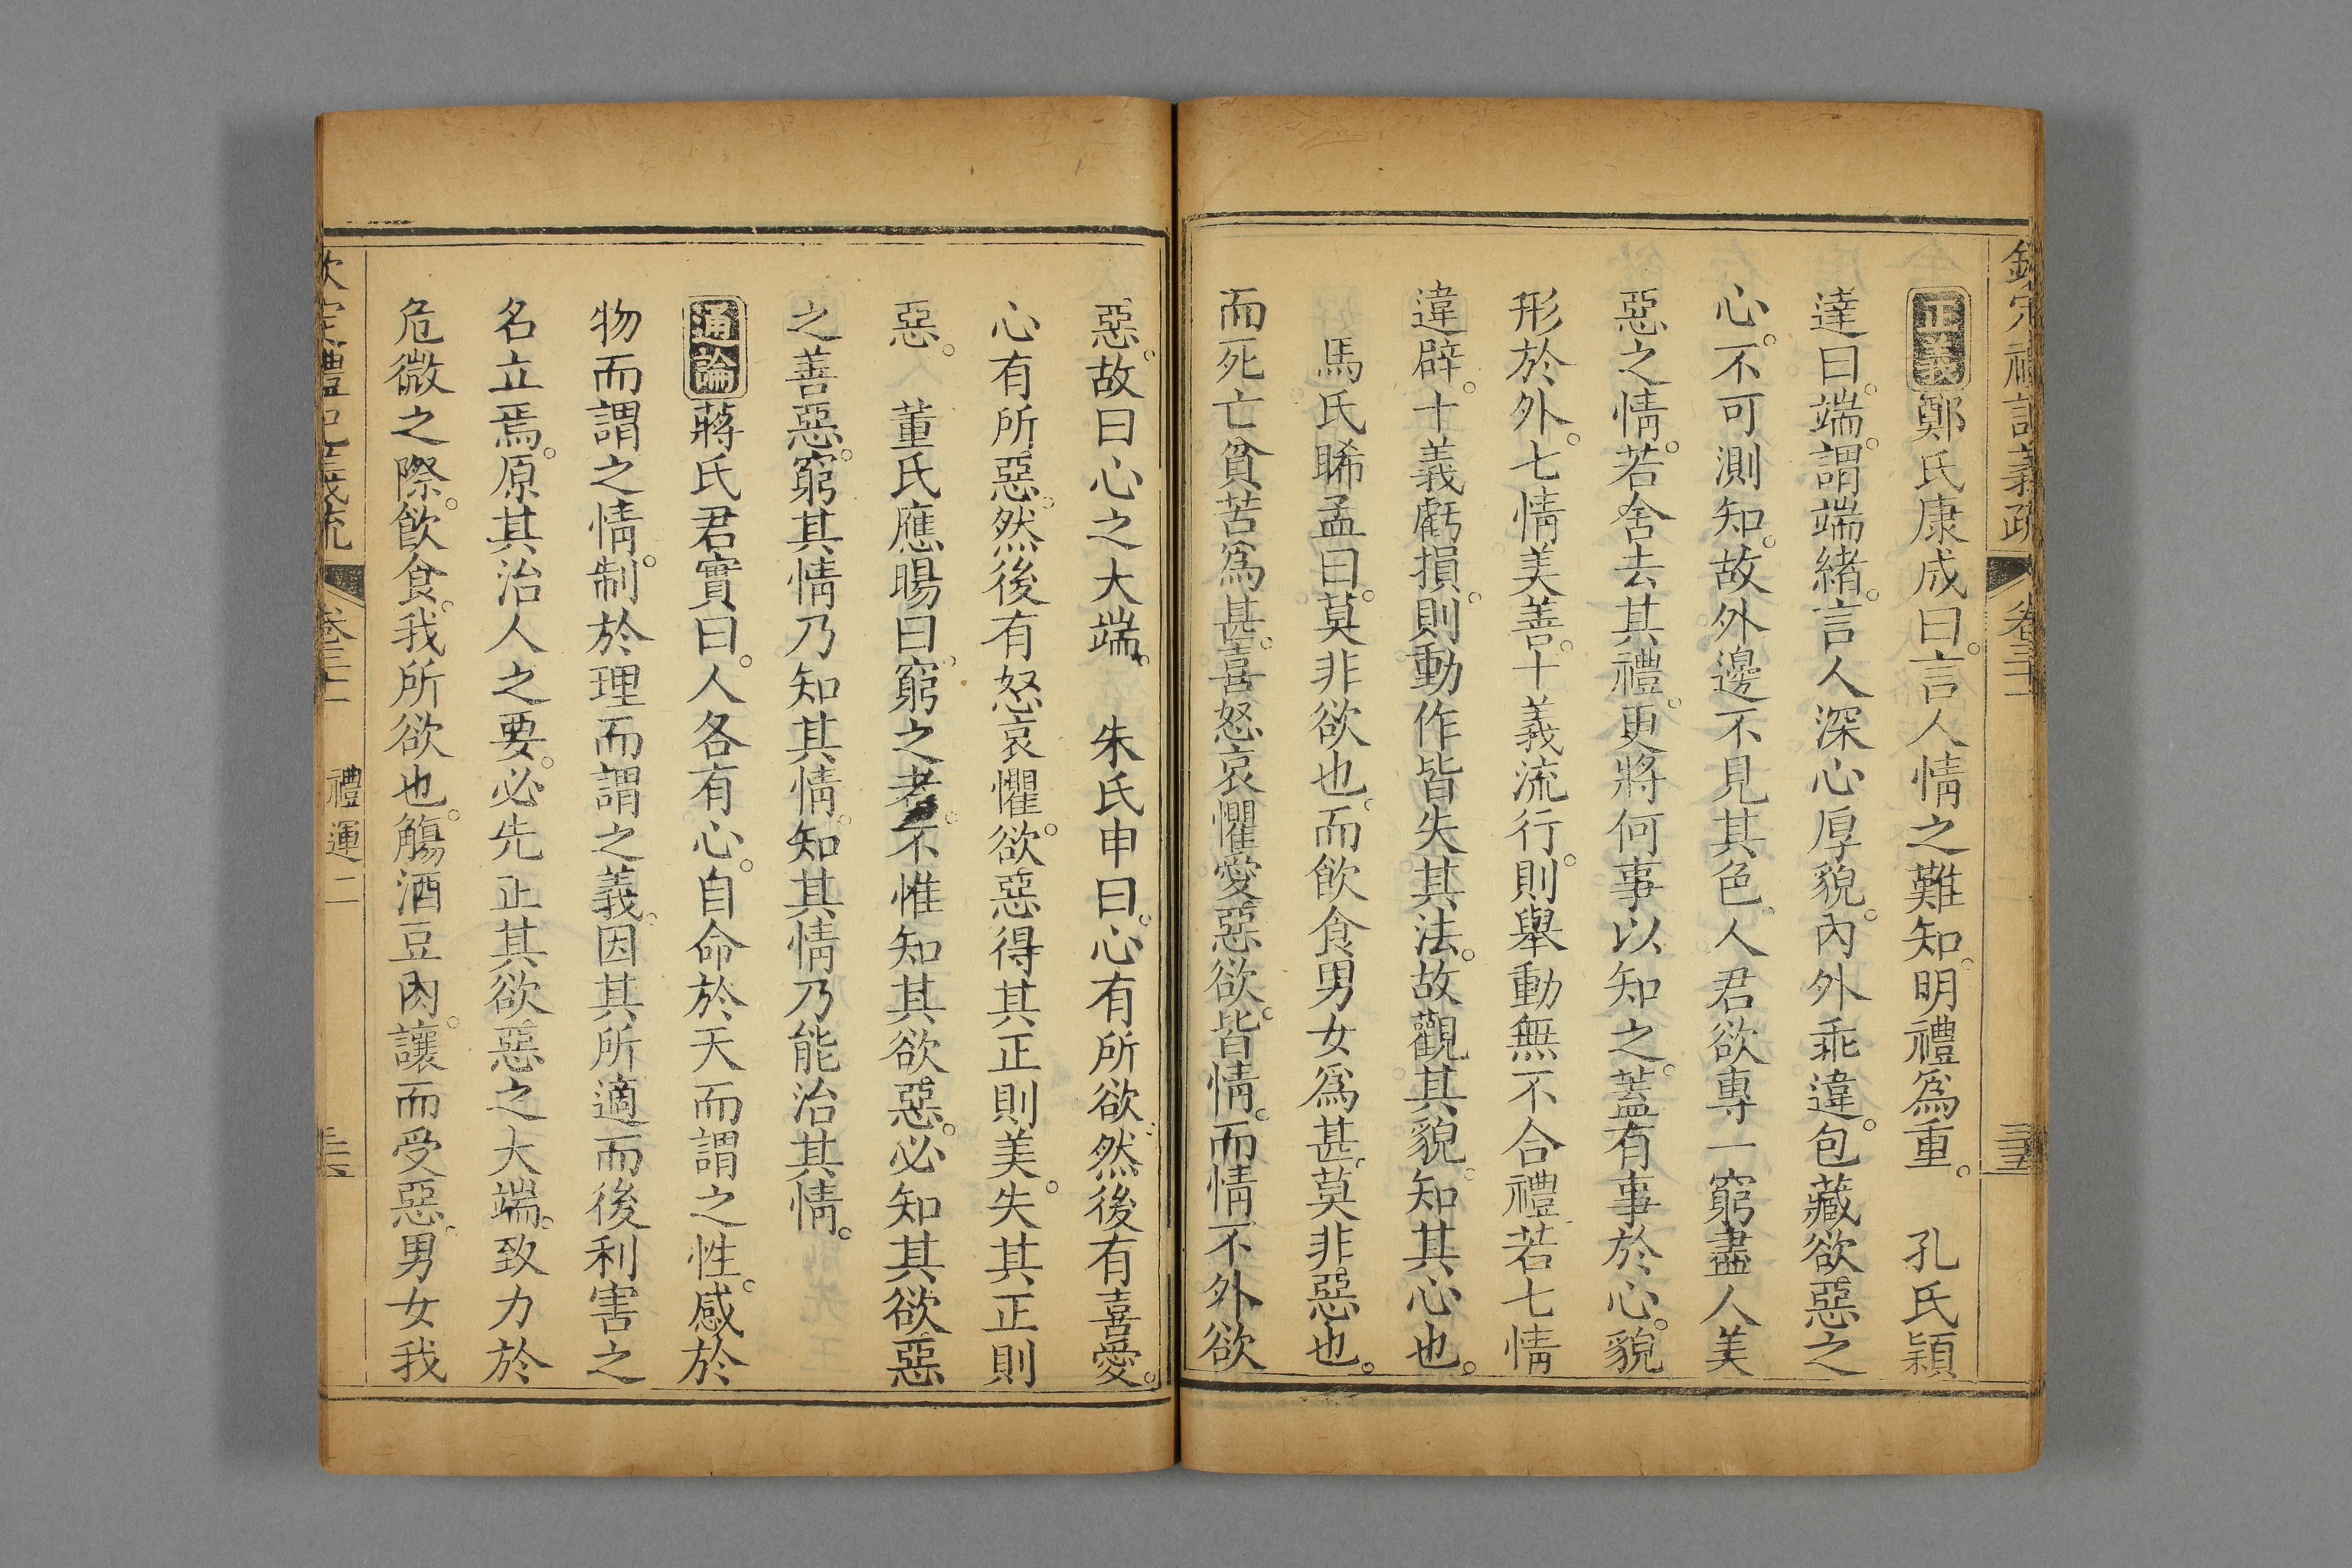 欽定禮記義疏 卷三十一 三五
正義鄭氏康成曰。言人情之難知。明禮爲重。 孔氏穎
達曰。端。謂端緒。言人深心厚貌。內外乖違。包藏欲惡之
心。不可測知。故外邊不見其色。人君欲專一窮盡人美
惡之情。若舍去其禮。更將何事以知之。蓋有事於心。貌
形於外。七情美善。十義流行。則舉動無不合禮。若七情
違辟。十義虧損。則動作皆失其法。故觀其貌。知其心也。
馬氏睎孟曰。莫非欲也。而飲食男女爲甚。莫非惡也。
而死亡貧苦爲甚。喜怒哀懼愛惡欲。皆情。而情不外欲
惡。故曰心之大端。 朱氏申曰。心有所欲。然後有喜愛。
心有所惡。然後有怒哀懼。欲惡得其正則美。失其正則
惡。 董氏應暘曰。窮之者。不惟知其欲惡。必知其欲惡
之善惡。窮其情乃知其情。知其情乃能治其情。
通論蔣氏君實曰。人各有心。自命於天而謂之性。感於
物而謂之情。制於理而謂之義。因其所適而後利害之
名立焉。原其治人之要。必先正其欲惡之大端。致力於
危微之際。飲食。我所欲也。觴酒豆肉。讓而受惡。男女我
欽定禮記義疏 卷三十一 禮運二